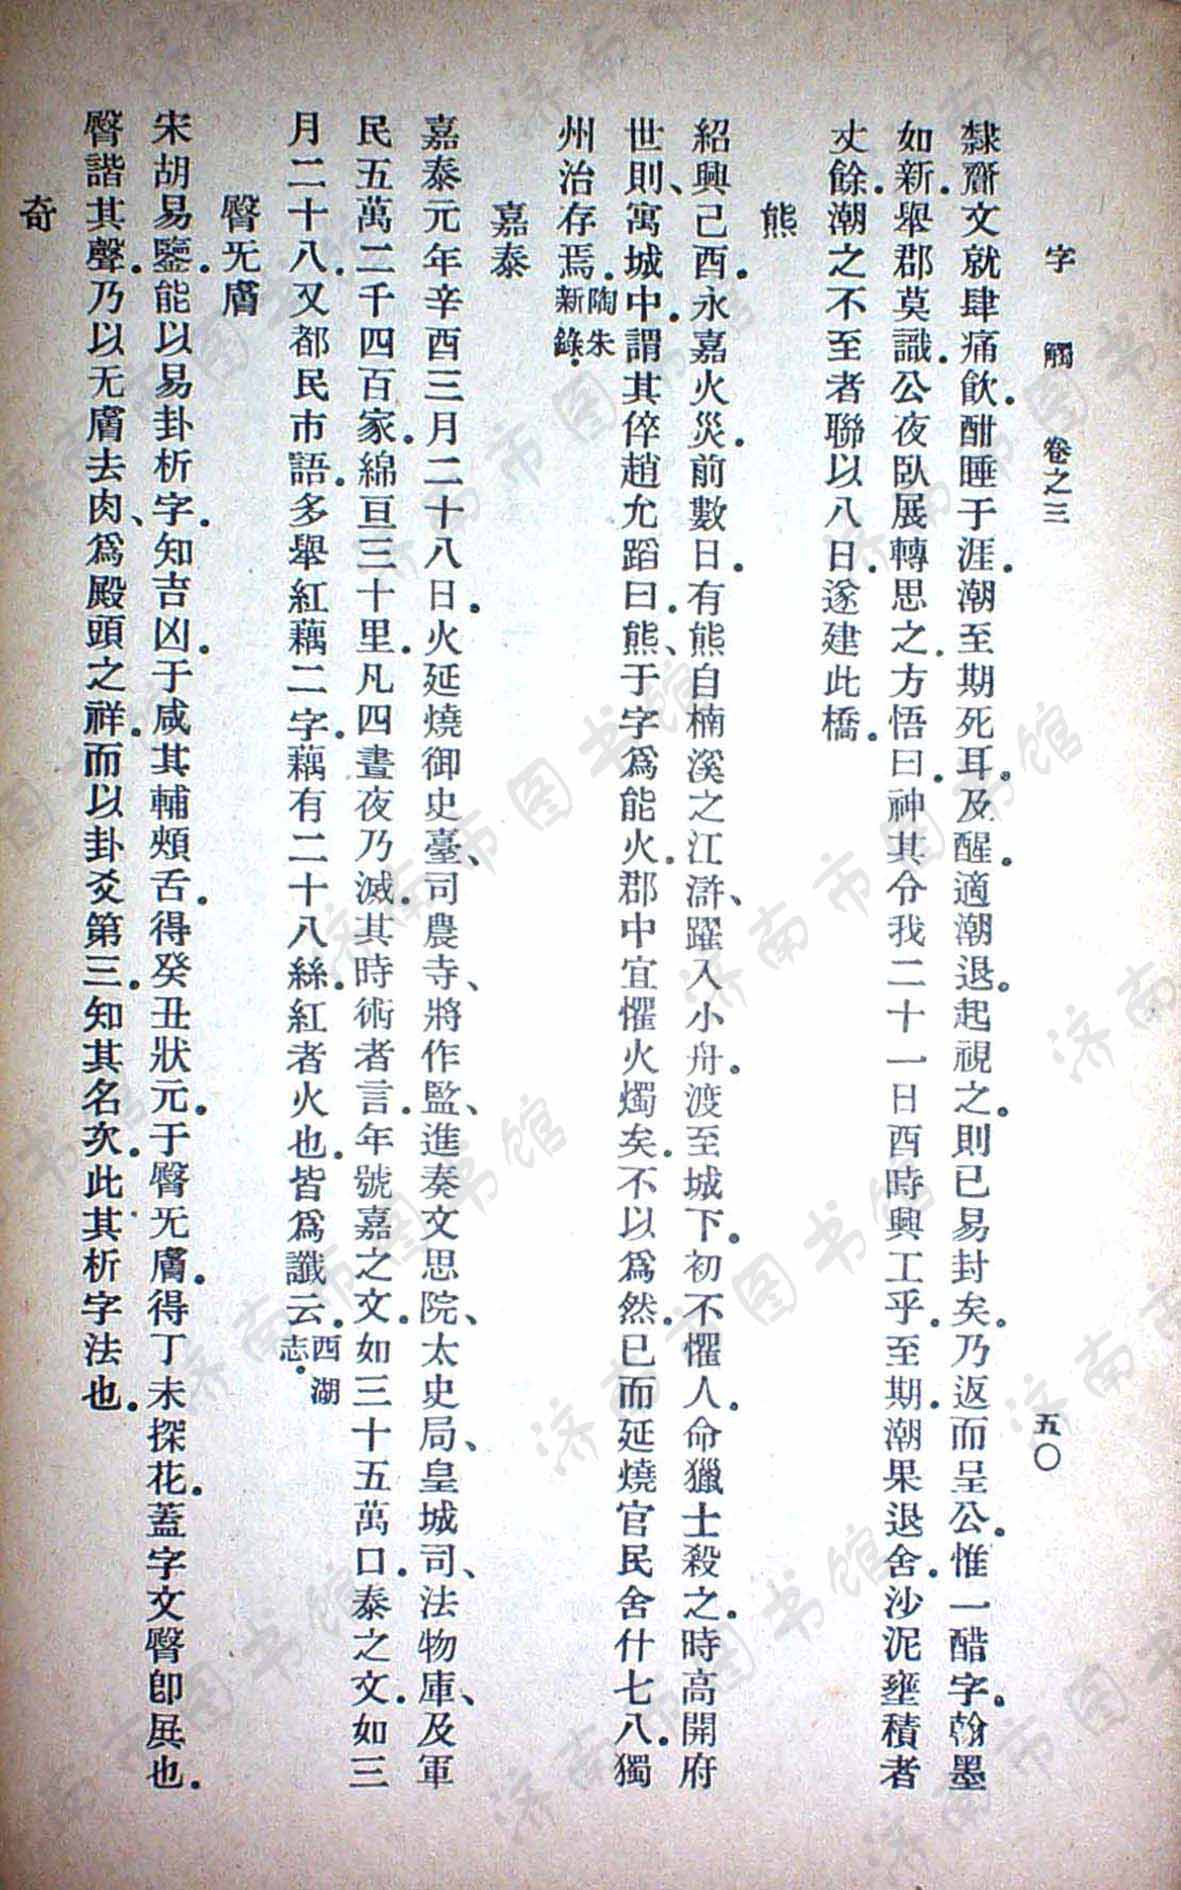 字觸 卷之三 五〇
隸齎文就肆痛飲。酣睡于涯。潮至期死耳。及醒。適潮退。起視之。則已易封矣。乃返而呈公。惟一醋字。翰墨
如新。舉郡莫識。公夜臥展轉思之。方悟曰。神其令我二十一日酉時興工乎。至期。潮果退舍。沙泥壅積者
丈餘。潮之不至者聯以八日。遂建此橋。
熊
紹興己酉。永嘉火災。前數日。有熊自楠溪之江滸、躍入小舟。渡至城下。初不懼人。命獵士殺之。時高開府
世則、寓城中。謂其倅趙允蹈曰。熊、于字爲能火。郡中宜懼火燭矣。不以爲然。已而延燒官民舍什七八。獨
州治存焉。陶朱新錄。
嘉泰
嘉泰元年辛酉三月二十八日。火延燒御史臺、司農寺、將作監、進奏文思院、太史局、皇城司、法物庫、及軍
民五萬二千四百家。綿亘三十里。凡四晝夜乃滅。其時術者言。年號嘉之文。如三十五萬口。泰之文。如三
月二十八。又都民市語。多舉紅藕二字。藕有二十八絲。紅者火也。皆爲讖云。西湖志。
臀无膚
宋胡易鑒。能以易卦析字。知吉凶。于咸其輔頰舌。得癸丑狀元。于臀无膚。得丁未探花。蓋字文臀卽㞟也。
臀諧其聲。乃以无膚去肉、爲殿頭之祥。而以卦爻第三。知其名次。此其析字法也。
奇